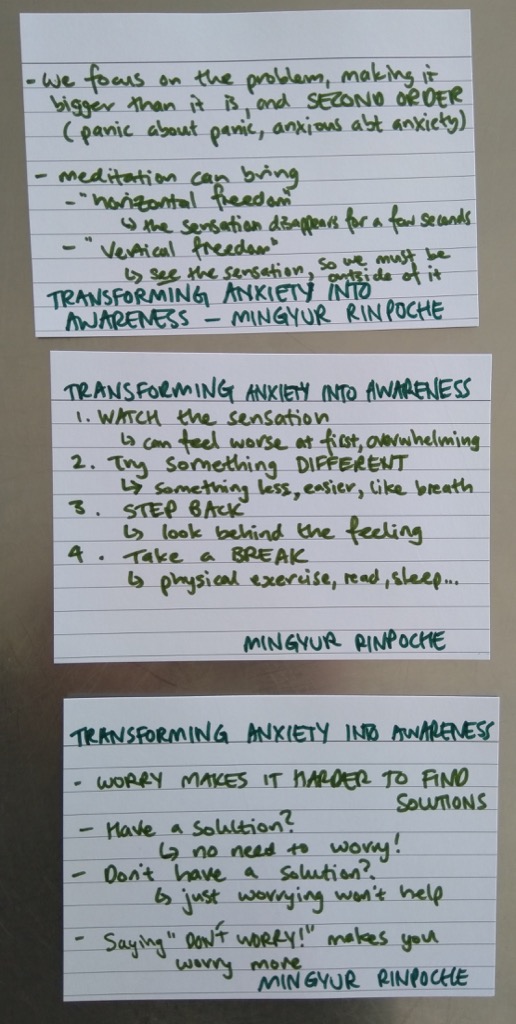 - We focus on the problem, making it
bigger than it is, and SECOND ORDER
(panic about panic, anxious abt anxiety)
- meditation can bring
- "horizontal freedom"
↳ the sensation disappears for a few seconds
- "vertical freedom"
↳ see the sensation, so we must be
outside of it
TRANSFORMING ANXIETY INTO
AWARENESS - MINGYUR RINPOCHE
TRANSFORMING ANXIETY INTO AWARENESS
1. WATCH the sensation
↳ can feel worse at first, overwhelming
2. Try something DIFFERENT
↳ something less, easier, like breath
3. STEP BACK
↳ look behind the feeling
4. Take a BREAK
↳ physical exercise, read, sleep...
MINGYUR RINPOCHE
TRANSFORMING ANXIETY INTO AWARENESS
- WORRY MAKES IT HARDER TO FIND
SOLUTIONS
- Have a solution?
↳ no need to worry!
- Don't have a solution?
↳ just worrying won't help
- Saying "DON'T WORRY!" makes you
worry more
MINGYUR RINPOCHE